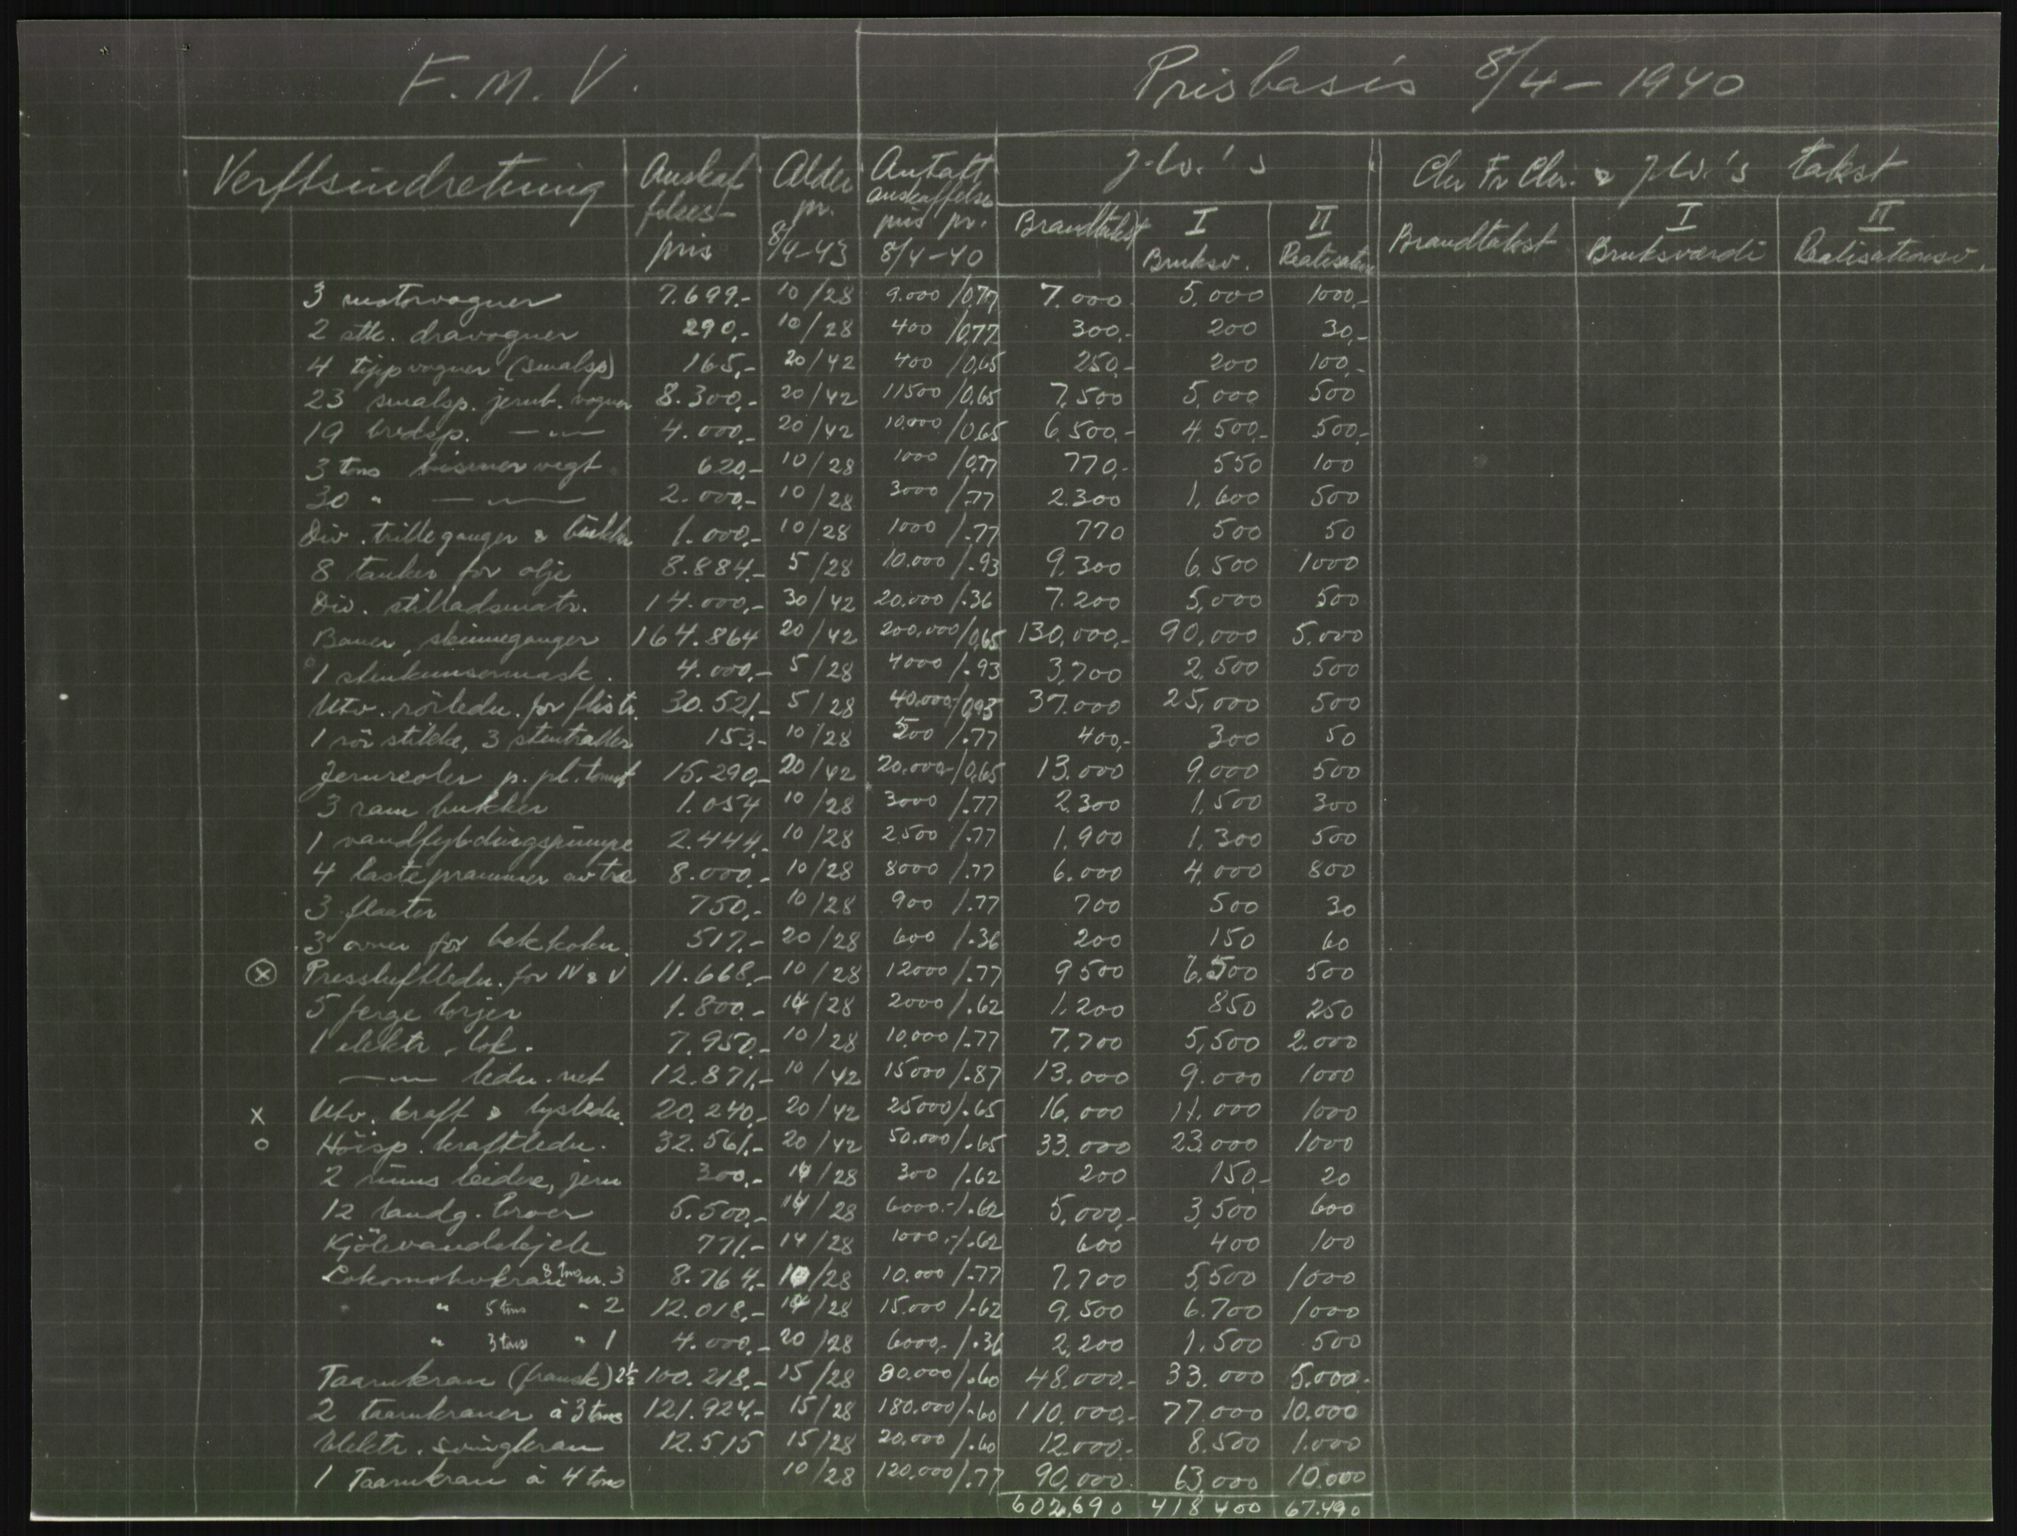 F. M. V. Prisbasis 8/4 - 1940
Verftsindretning Anskaffelses- pris Alder pr. 8/4-43 Antatt anskaffelses pris pr. 8/4-40 J.W.'s Chr Fr Chr. & J.W.'s takst
Brandtakst I Bruksv. II Realisation Brandtakst I Bruksværdi II Realisationsv.
3 motorvogner 7.699.- 10/28 9.000/0,77 7.000 5,000 1000,-
2 stk. dravogner 290,- 10/28 400/0,77 300,- 200 30,-
4 tippvogner (smalsp) 165,- 20/42 400/0,65 250,- 200 100,-
23 smalsp. jernb. vogner 8.300,- 20/42 11500/0,65 7,500 5,000 500
19 bredsp. -"- 4.000,- 20/42 10,000/0,65 6,500,- 4.500,- 500,-
3 tons bismervegt 620,- 10/28 1000/0,77 770,- 550 100
30 " -"- 2.000,- 10/28 3000/.77 2.300 1,600 500
Div. trilleganger & bukker 1.000,- 10/28 1000/.77 770 500 50
8 tanker for olje 8.884,- 5/28 10.000/.93 9,300 6,500 1000
Div. stilladsmatr. 14.000,- 30/42 20.000/.36 7.200 5,000 500
Baner, skinneganger 164.864 20/42 200,000/0,65 130,000,- 90,000 5.000
1 4.000,- 5/28 4000/.93 3,700 2,500 500
Utv. rörledn. for 30.521,- 5/28 40.000,-/0,93 37.000 25,000 500
1 rör stikke, 3 stentraller 153,- 10/28 500/.77 400,- 300 50
Jernreoler p. pl. tomt 15.290,- 20/42 20.000,-/0,65 13.000 9,000 500
3 ram bukker 1.054 10/28 3000/.77 2,300 1,500 300
1 2.444,- 10/28 2500/.77 1,900 1,300 500
4 lasteprammer av træ 8.000,- 10/28 8000/.77 6.000 4,000 800
3 flaater 750,- 10/28 900/.77 700 500 30
3 ovner for bekkokn. 517.- 20/28 600/.36 200 150 60
⊗ Pressluftledn. for IV & V 11.668,- 10/28 12000/.77 9500 6,500 500
5 ferge borjer 1.800.- 14/28 2000/.62 1,200 850 250
1 elektr. lok. 7.950,- 10/28 10,000/.77 7,700 5,500 2.000
-"- ledn. net 12.871,- 10/42 15000/.87 13.000 9.000 1000
x Utv. kraft & lysledn. 20.240,- 20/42 25000/.65 16,000 11.000 1000
o Höisp. kraftledn. 32.561.- 20/42 50.000/.65 33.000 23.000 1000
2 rums leidere, jern 300,- 14/28 300/.62 200 150,- 20
12 landg. broer 5.500,- 14/28 6000.-/.62 5,000,- 3,500 600
Kjölevandskjele 771.- 14/28 1000.-/.62 600 400 100
Lokomotivkran 8 tons nr. 3 8.764,- 10/28 10.000/.77 7,700 5,500 1000
" 5 tons " 2 12.018,- 14/28 15.000/.62 9,500 6.700 1000
" 3 tons " 1 4.000,- 20/28 6000,-/.36 2,200 1,500 500
Taarnkran (fransk) 2½ 100.218.- 15/28 80.000/.60 48.000.- 33.000 5.000.-
2 taarnkraner à 3 tons 121.924,- 15/28 180.000/.60 110,000,- 77.000 10.000
Elektr. svingkran 12.515 15/28 20.000/.60 12.000.- 8.500 1.000
1 Taarnkran à 4 tons 10/28 120,000/.77 90,000 63,000 10.000
602,690 418400 67.490